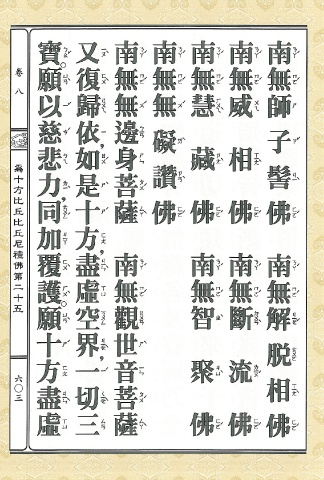 南無師子髻佛　南無解脫相佛
南無威相佛　南無斷流佛
南無慧藏佛　南無智聚佛
南無無礙讚佛
南無無邊身菩薩　南無觀世音菩薩
又復歸依，如是十方，盡虛空界，一切三
寶。願以慈悲力，同加覆護。願十方盡虛
卷八
為十方比丘比丘尼禮佛第二十五
六〇三